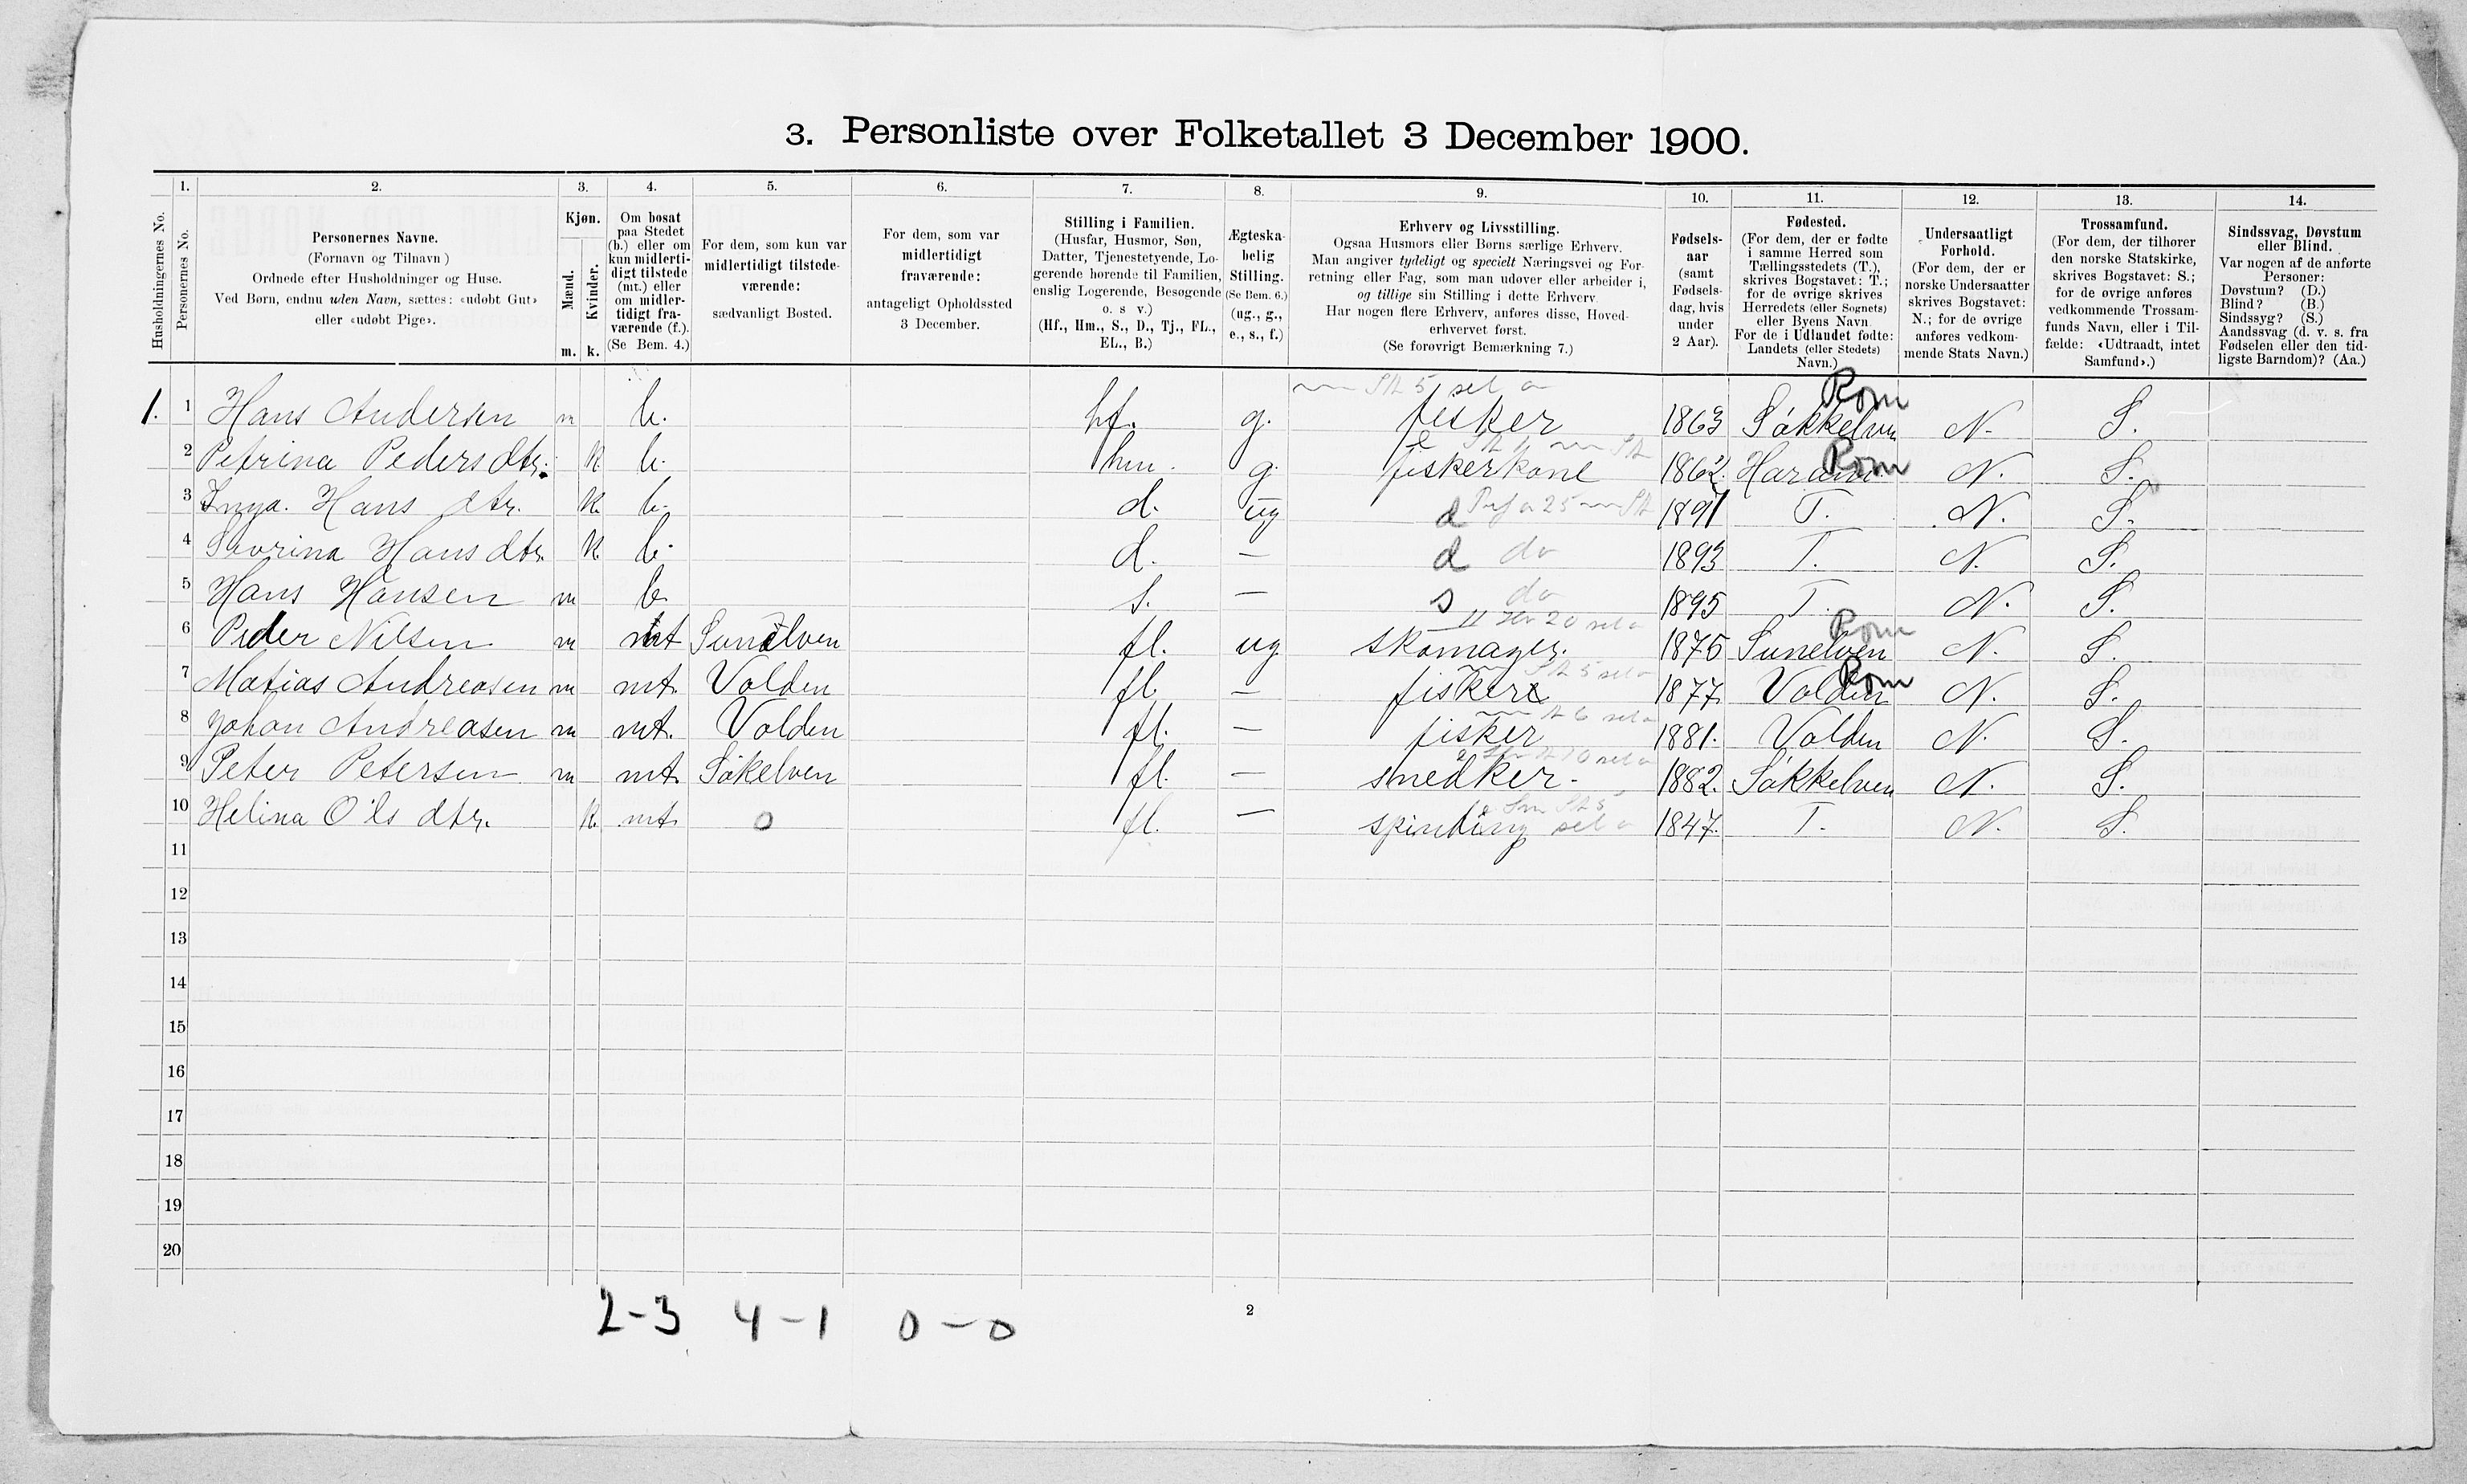 3. Personliste over Folketallet 3 December 1900.
Husholdningernes No.
1.
Personernes No.
2.
Personernes Navne.
(Fornavn og Tilnavn)
Ordnede efter Husholdninger og Huse.
Ved Børn, endnu uden Navn, sættes: «udøbt Gut»
eller «udøbt Pige».
3.
Kjøn.
Mænd.
Kvinder.
m. k.
4.
Om bosat
paa Stedet
(b.) eller om
kun midlerti-
digt tilstede
(mt.) eller
om midler-
tidigt fra-
værende (f.).
(Se Bem. 4.)
5.
For dem, som kun var
midlertidigt tilstede-
værende:
sædvanligt Bosted.
6.
For dem, som var
midlertidigt
fraværende:
antageligt Opholdssted
3 December.
7.
Stilling i Familien.
(Husfar, Husmor, Søn,
Datter, Tjenestetyende, Lo-
gerende hørende til Familien,
enslig Logerende, Besøgende
o. s v.)
(Hf., Hm., S., D., Tj., FL.,
EL., B.)
8.
Ægteska-
belig
Stilling.
(Se Bem. 6.)
(ug., g.,
e., s., f.)
9.
Erhverv og Livsstilling.
Ogsaa Husmors eller Børns særlige Erhverv.
Man angiver tydeligt og specielt Næringsvei og For-
retning eller Fag, som man udøver eller arbeider i,
og tillige sin Stilling i dette Erhverv.
Har nogen flere Erhverv, anføres disse, Hoved-
erhvervet først.
(Se forøvrigt Bemærkning 7.)
10.
Fødsels-
aar
(samt
Fødsels-
dag, hvis
under
2 Aar).
11.
Fødested.
(For dem, der er fødte
i samme Herred som
Tællingsstedets (T.),
skrives Bogstavet: T.;
for de øvrige skrives
Herredets (eller Sognets)
eller Byens Navn.
For de i Udlandet fødte:
Landets (eller Stedets)
Navn.)
12.
Undersaatligt
Forhold.
(For dem, der er
norske Undersaatter
skrives Bogstavet:
N.; for de øvrige
anføres vedkom-
mende Stats Navn.)
13.
Trossamfund.
(For dem, der tilhører
den norske Statskirke,
skrives Bogstavet: S.;
for de øvrige anføres
vedkommende Trossam-
funds Navn, eller i Til-
fælde: «Udtraadt, intet
Samfund».)
14.
Sindssvag, Døvstum
eller Blind.
Var nogen af de anførte
Personer:
Døvstum? (D.)
Blind? (B.)
Sindssyg? (S.)
Aandssvag (d. v. s. fra
Fødselen eller den tid-
ligste Barndom)? (Aa.)
1. 1 Hans Andersen m b. hf. g. fisker 1863 Søkkelven Rom N. S.
2 Petrina Pedersdtr. k b. hm. g. fiskerkone 1862 Haram Rom N. S.
3 Inga. Hans dtr. k b. d. ug d 1891 T. N. S.
4 Sevrina Hansdtr. k b. d. — d do 1893 T. N. S.
5 Hans Hansen m b s. — s do 1895 T. N. S.
6 Peder Nilsen m mt Sunelven fl. ug skomager. 1875 Sunelven Rom N. S.
7 Matias Andreasen m mt. Volden fl. — fisker 1877. Volden Rom N. S.
8 Johan Andreasen m mt. Volden fl. — fisker 1881. Volden N. S.
9 Peter Petersen m mt. Søkelven fl. — snedker. 1882. Søkkelven N. S.
10 Helina Ols dtr. k. mt. 0 fl. — spinding 1847. T. N. S.
11
12
13
14
15
16
17
18
19
20
2-3 4-1 0-0
2